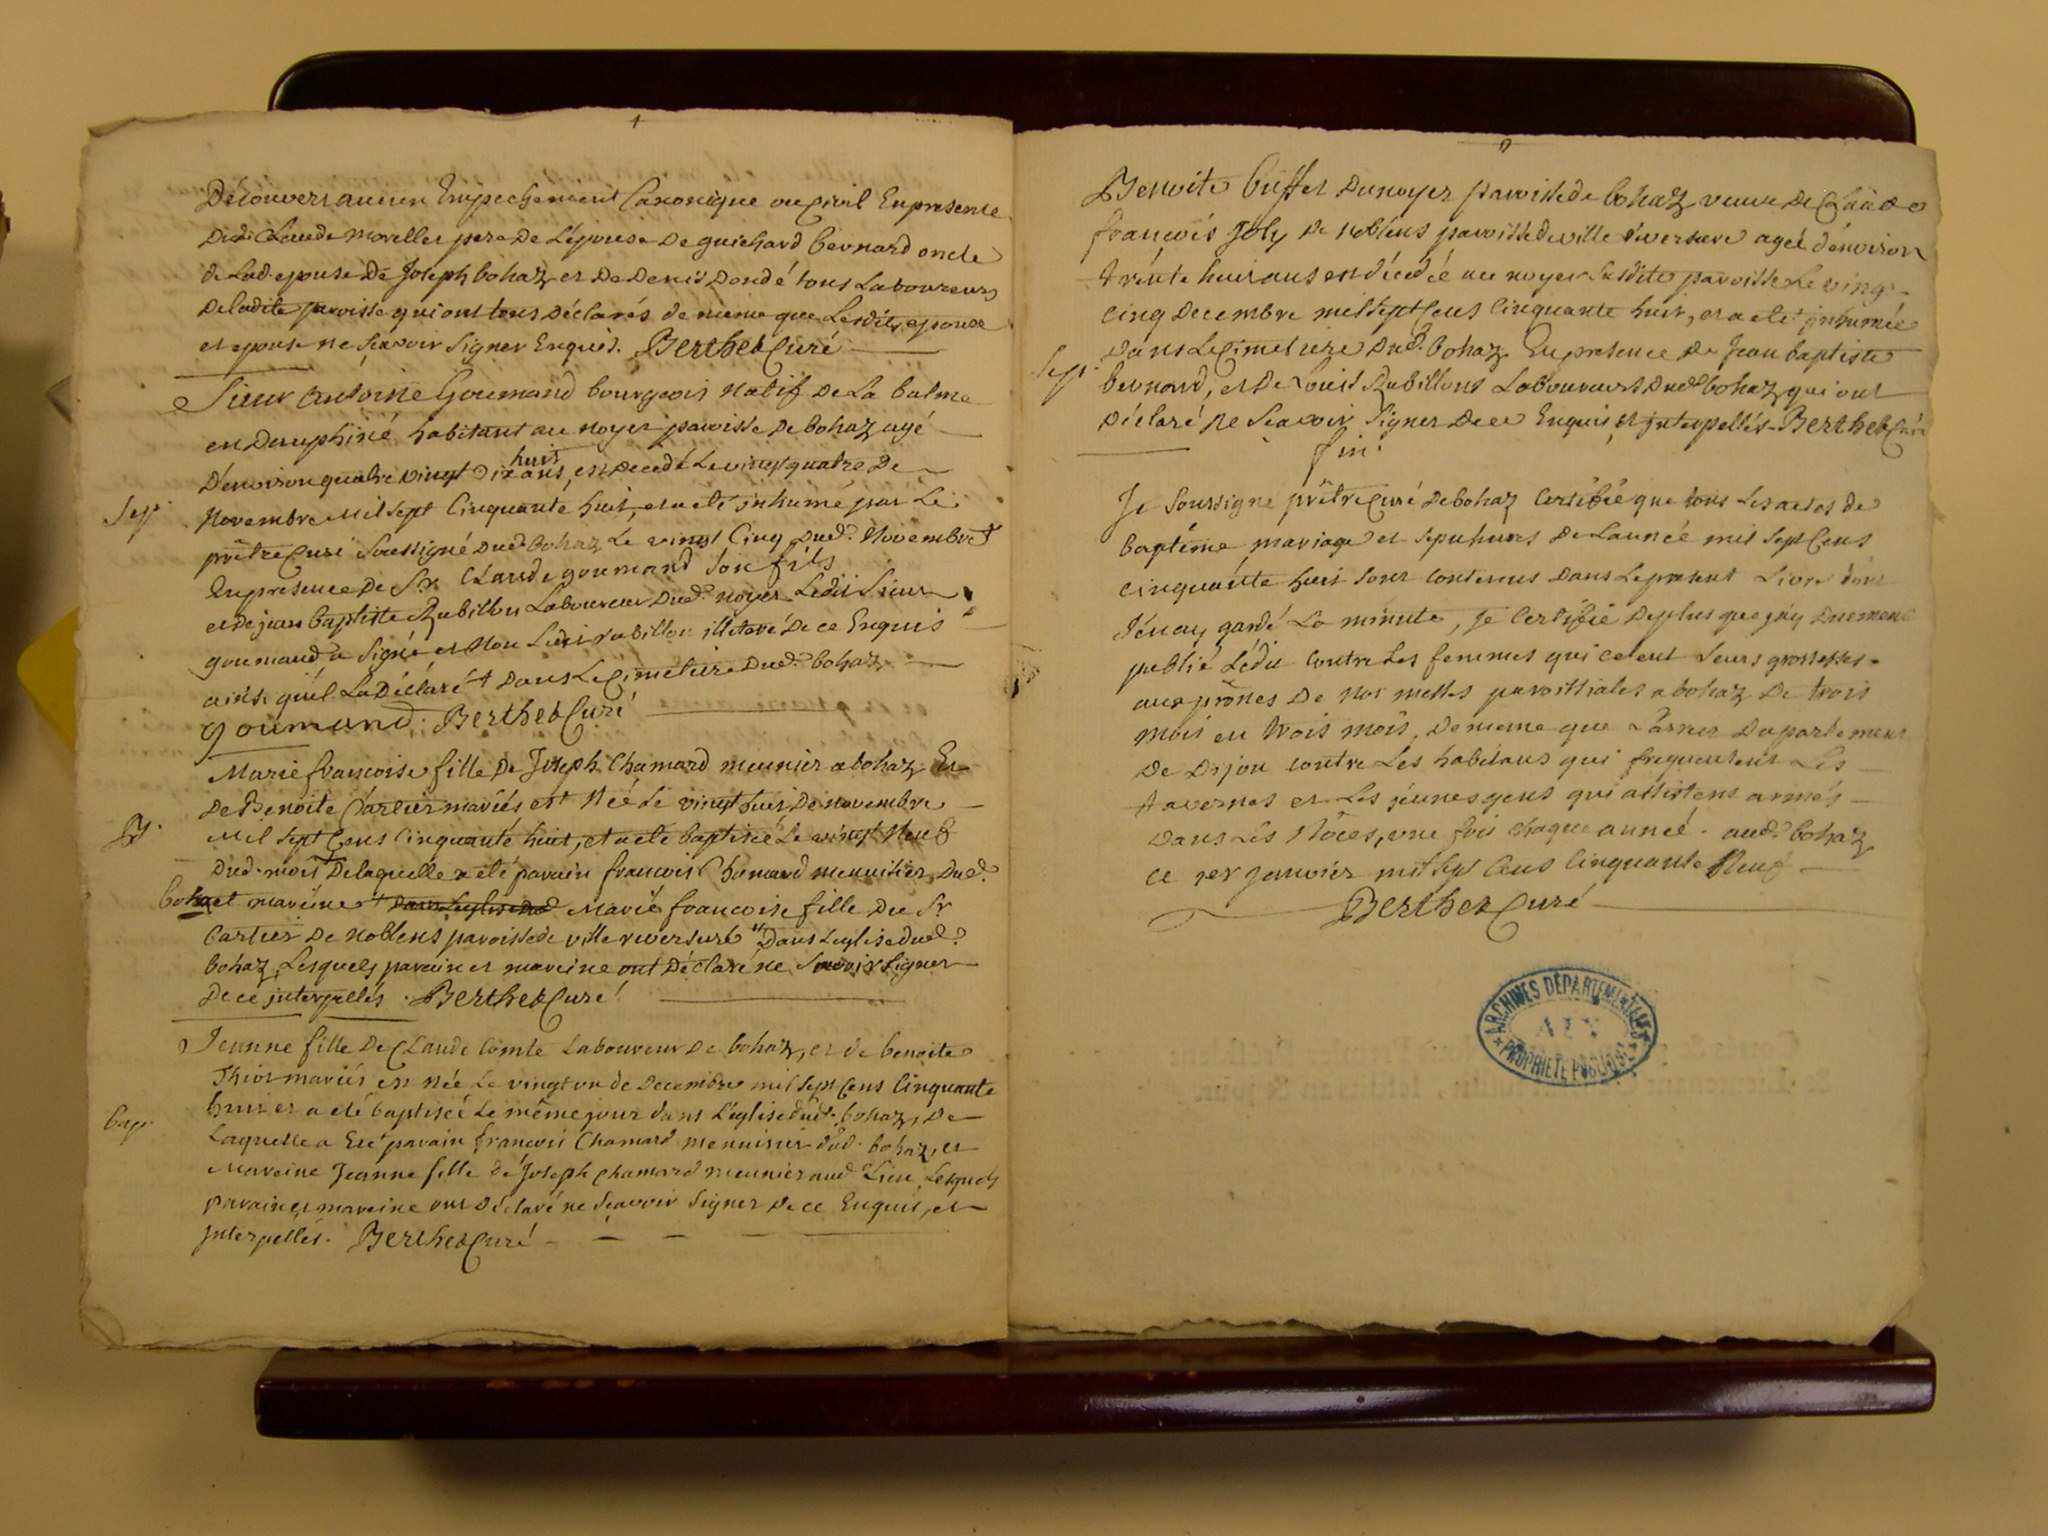 Découvert aucun Empechement Canonique ou Civil En presence
Dud. Claude morellet pere De L'épouse De guichard bernard oncle
de Lad. epouse De Joseph bohaz et De Denis Dondé tous Laboureurs
De ladite paroisse qui ont tous Déclarés de meme que Lesdits epoux
et epouse ne Sçavoir Signer Enquis. Berthet Curé
Sieur Antoine Goumand bourgeois Natif De La balme
en Dauphiné habitant au noyer paroisse De bohaz agé
D'environ quatre vingt Dix huit ans, est Decedé Le vingt quatre De
Sep.
Novembre Mil sept Cinquante huit, et a eté inhumé par Le
prêtre Curé Soussigné Dud. bohaz Le vingt Cinq Dud. Novembre +
En presence De Sr. Claude goumand Son fils
et De jean baptiste Rubillon Laboureur Dud. noyer Ledit Sieur
goumand a Signé et Non Ledit rubillon illiteré De ce Enquis
ainsi qu'il La Déclaré + Dans Le Cimetiere Dud. bohaz
goumand. Berthet Curé
Marie francoise fille De Joseph Chamard meunier a bohaz Et
De Benoite Cartier mariés est Née Le vingt huit De novembre
B.
Mil Sept Cens Cinquante huit, et a eté baptisée Le vingt Neuf
Dud. mois De laquelle a eté parain francois Chamard menuisier Dud.
bohaz et mareine + Dans Leglise Dud. Marie francoise fille Du Sr
Cartier De Noblens paroisse de ville reversure + Dans Leglise dud.
bohaz Lesquels parain et mareine ont Déclaré ne Scavoir Signer
De ce interpellés. Berthet Curé
Jeanne fille De Claude Comte Laboureur De bohaz, et de benoite
Thiot mariés est Née Le vingt un de Decembre mil Sept Cens Cinquante
huit et a eté baptisée Le même jour dans L'eglise dud. bohaz, De
Bap.
Laquelle a Eté parain francois Chamard menuisier dud. bohaz, et
Mareine Jeanne fille de Joseph Chamard meunier aud. Lieu Lesquels
parain et mareine ont Déclaré ne Scavoir Signer De ce Enquis, et
interpellés. Berthet Curé
Benoite buffet Du noyer paroisse de bohaz veuve De Claude
francois Joly De Noblens paroisse de ville reversure agée d'environ
trente huit ans est décédée au noyer Susdite paroisse Le vingt
cinq Decembre mil Sept Cens Cinquante huit, et a eté inhumée
Dans Le Cimetiere Dud. bohaz En presence De Jean baptiste
Sep.
bernard, et De Louis Rubillons Laboureurs Dud. bohaz qui ont
Déclaré Ne Scavoir Signer De ce Enquis et interpellés. Berthet Curé
fin.
Je Soussigné prêtre Curé De bohaz Certifié que tous Les actes de
baptême mariage et Sepultures De Lannée mil Sept Cens
Cinquante huit Sont Contenus Dans Le present Livre dont
J'en ay gardé La minute, Je Certifie De plus que j'ay Duement
publié L'edit Contre Les femmes qui celent Leurs grossesses
aux prônes De Nos messes paroissiales a bohaz De trois
mois en trois mois, De meme que L'arret Du parlement
De Dijon contre Les habitans qui frequentent Les
tavernes et Les jeunes gens qui assistent armés
Dans Les Nôces, une fois Chaque année. aud. bohaz
Ce 1er Janvier mil Sept Cens Cinquante Neuf
Berthet Curé
ARCHIVES DÉPARTEMENTALES
AIN
PROPRIÉTÉ PUBLIQUE